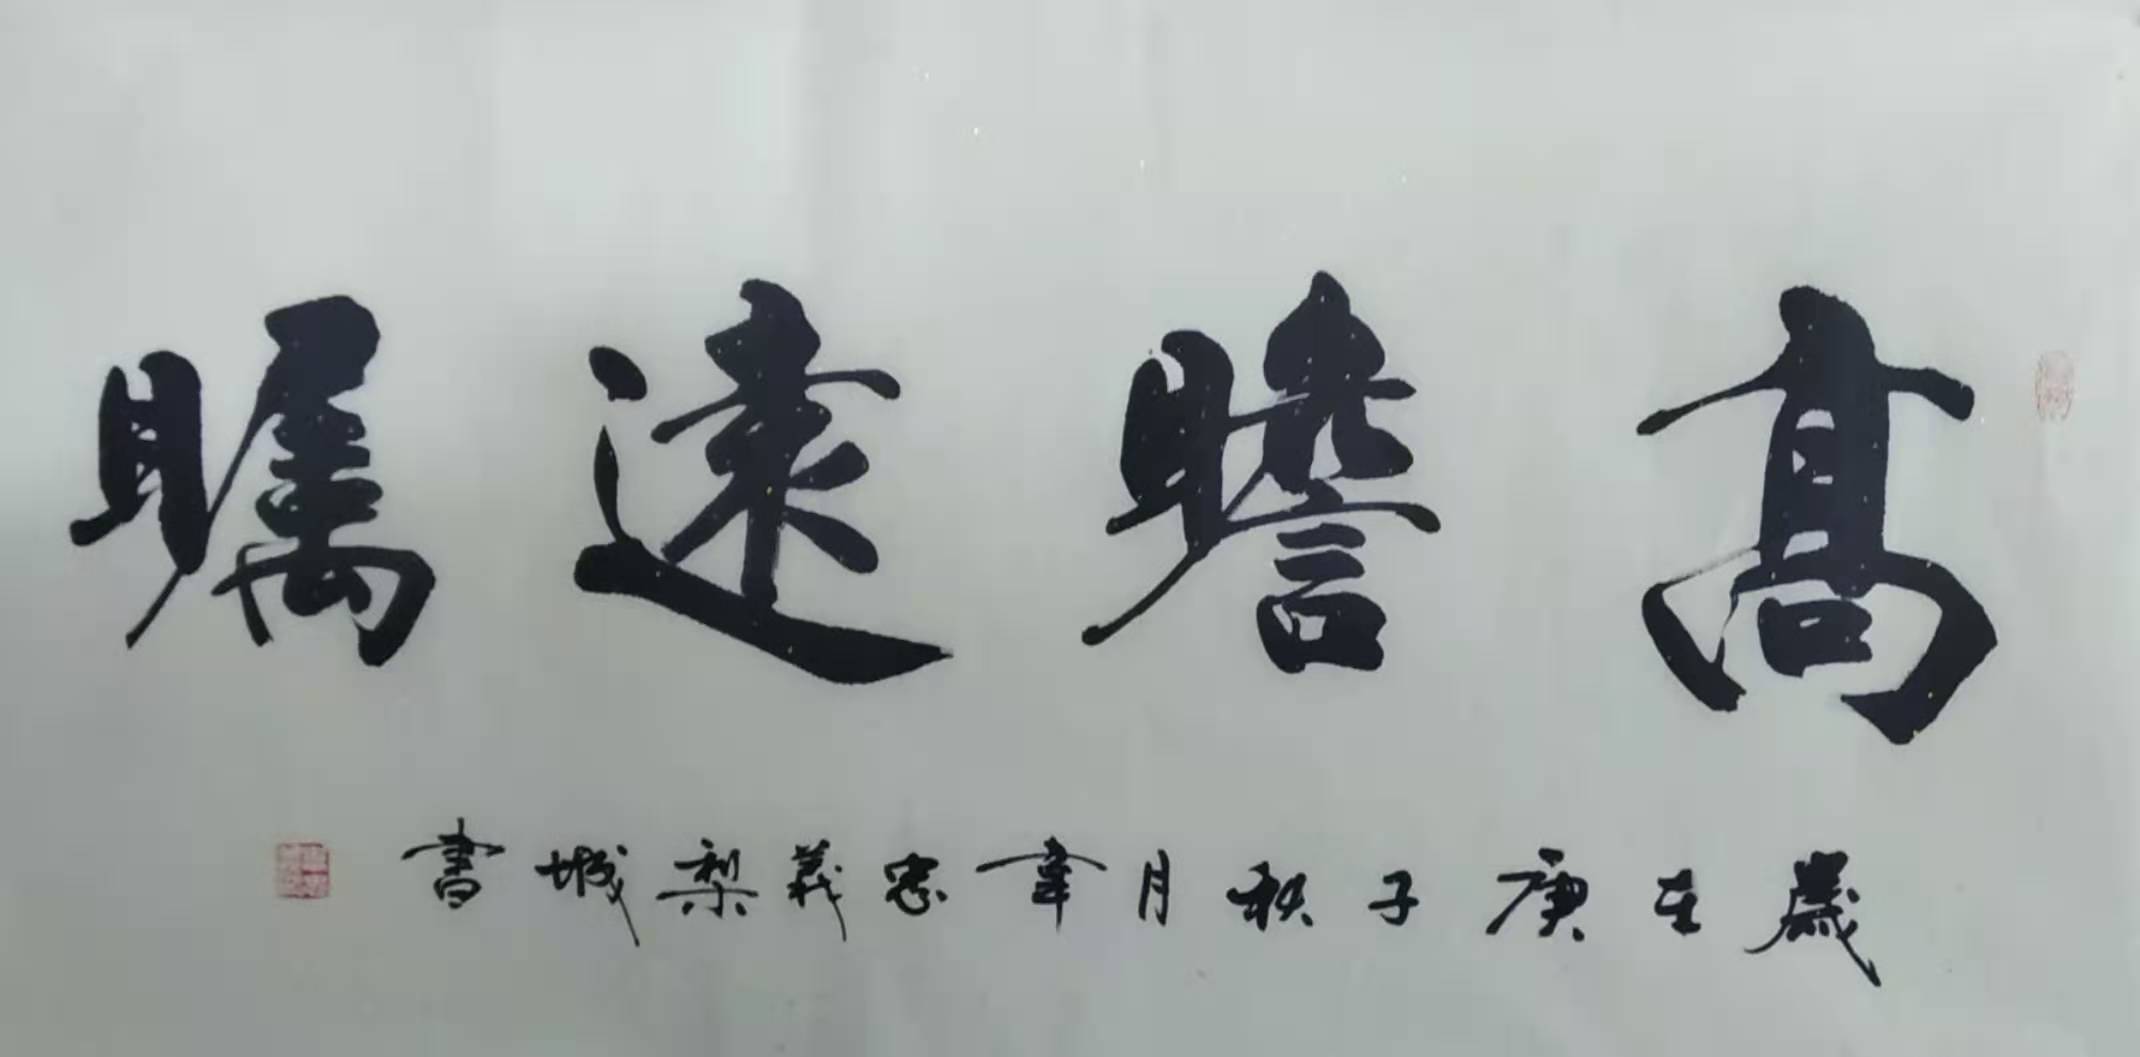 高瞻遠矚
歲在庚子秋月韋忠義梨城書